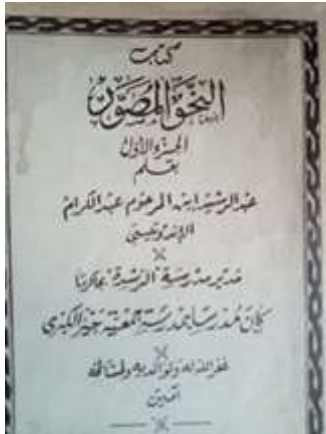 كتاب
النحو المصور
الجزء الأول
بقلم
عبد الرشيد ابن المرحوم عبد الكرام
الإندونيسي
مدير مدرسة "الرشدة"
كان مدرسا بمدرسة جمعية خير الكبرى
غفر الله له ولوالديه ولمشائخه
آمين